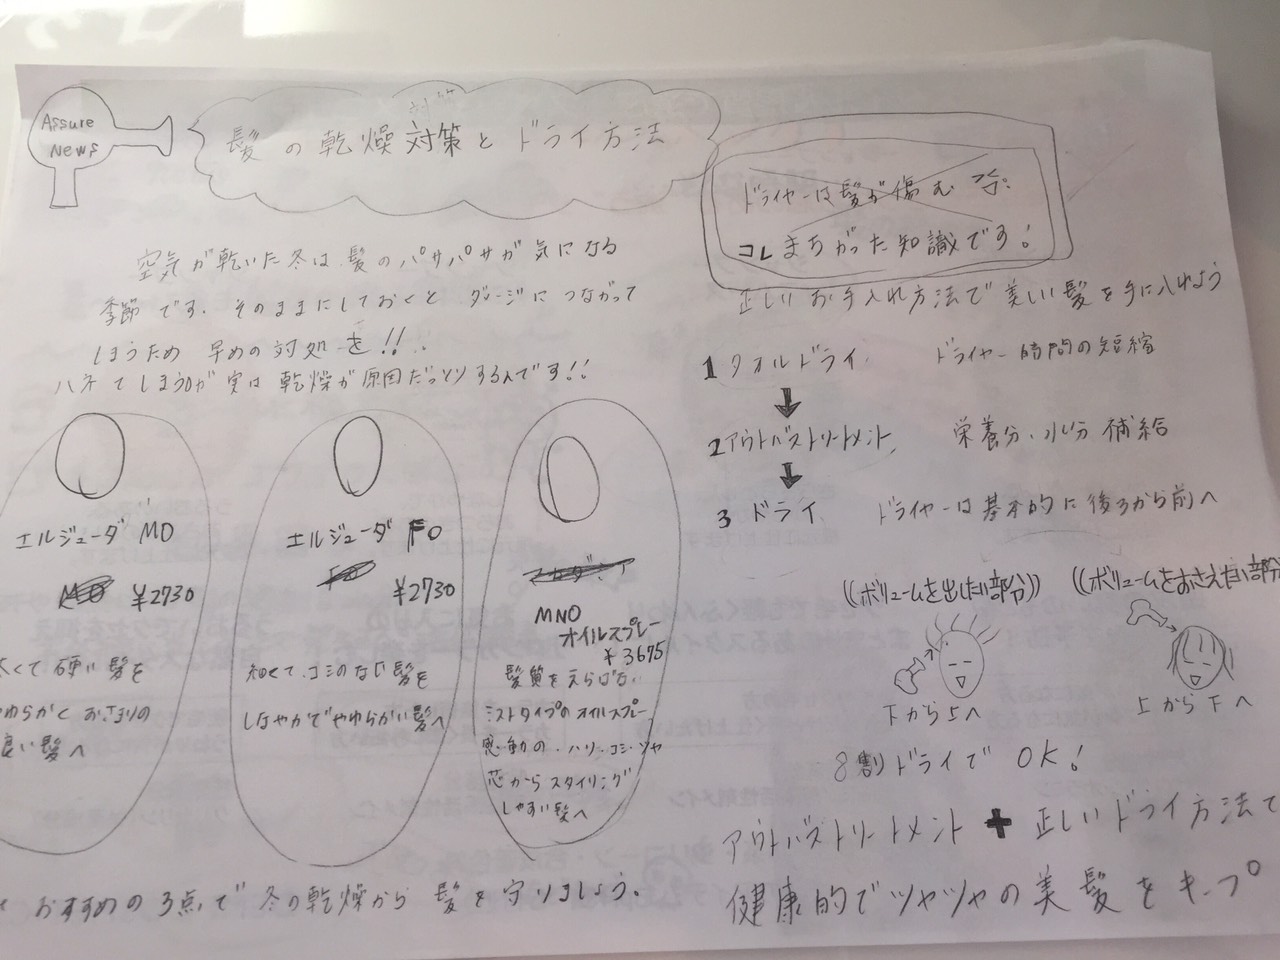 Assure
News
髪の乾燥対策とドライ方法
空気が乾いた冬は髪のパサパサが気になる
季節です。そのままにしておくとダメージにつながって
しまうため 早めの対処を!!
ハネてしまうのが実は乾燥が原因だったりするんです!!
エルジューダ MO
¥2730
太くて硬い髪を
やわらかくおさまりの
良い髪へ
エルジューダ FO
¥2730
細くてコシのない髪を
しなやかでやわらかい髪へ
MNO
オイルスプレー
¥3675
髪質をえらばない
ミストタイプのオイルスプレー
感動の、ハリ、コシ・ツヤ
芯からスタイリング
しやすい髪へ
おすすめの3点で冬の乾燥から髪を守りましょう。
ドライヤーは髪が傷む
コレまちがった知識です!
正しいお手入れ方法で美しい髪を手に入れよう
1 タオルドライ ドライヤー時間の短縮
2 アウトバストリートメント 栄養分、水分補給
3 ドライ ドライヤーは基本的に後ろから前へ
((ボリュームを出したい部分)) ((ボリュームをおさえたい部分
下から上へ 上から下へ
8割ドライで OK!
アウトバストリートメント + 正しいドライ方法で
健康的でツヤツヤの美髪をキープ